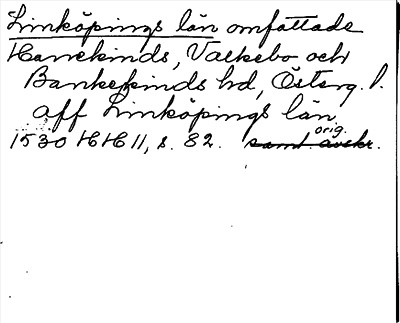 Linköpings län omfattade
Hanekinds, Valkebo och
Bankekinds hd, Österg. l.
aff Linköpings län
orig.
1530 HH 11, s. 82. samt avskr.